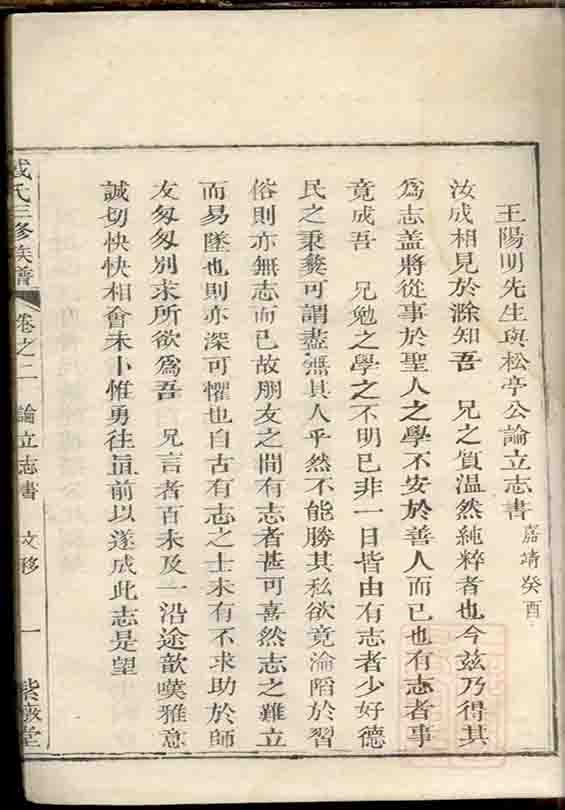 王陽明先生與松亭公論立志書 嘉靖癸酉
汝成相見於滁知吾 兄之質温然純粹者也今兹乃得其
為志盖將從事於聖人之學不安於善人而已也有志者事
竟成吾 兄勉之學之不明已非一日皆由有志者少好德
民之秉彜可謂盡無其人乎然不能勝其私欲竟淪陷於習
俗則亦無志而已故朋友之間有志者甚可喜然志之難立
而易墜也則亦深可懼也自古有志之士未有不求助於師
友匆匆別求所欲為吾 兄言者百未及一沿途歆嘆雅意
誠切快快相會未卜惟勇往直前以遂成此志是望
戴氏三修族譜 卷之二 論立志書 文移 一 紫薇堂